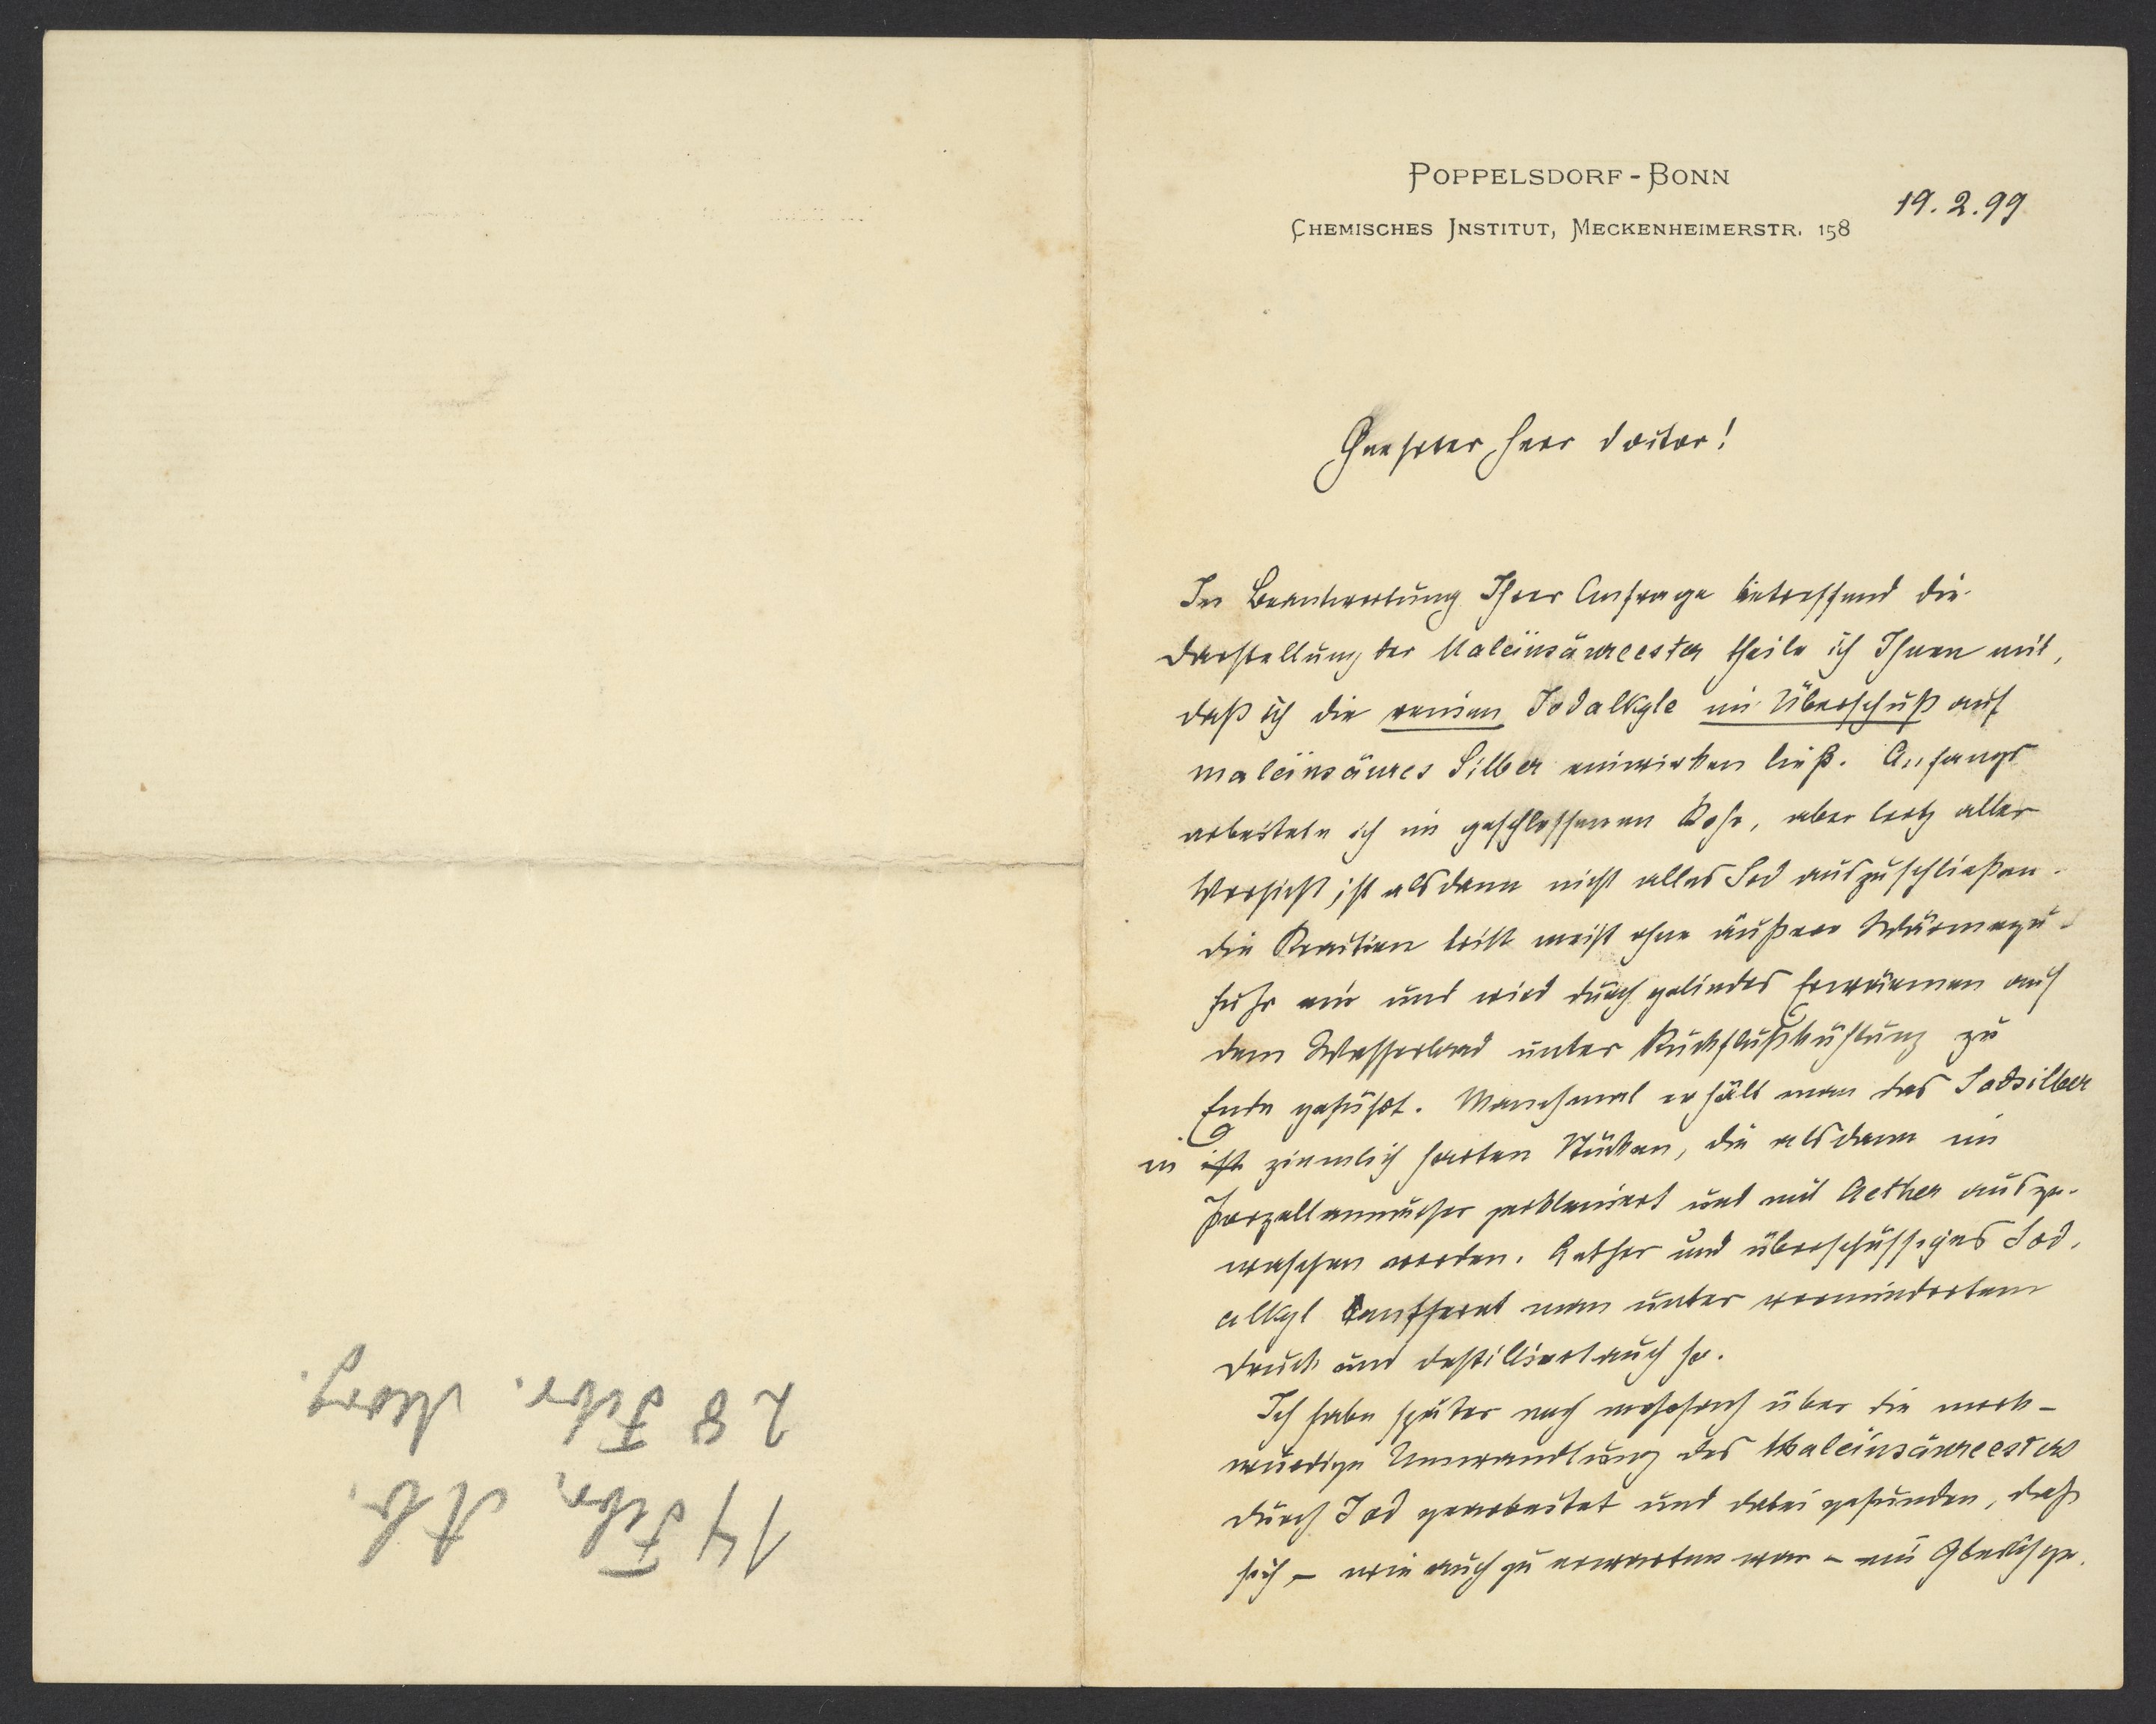 POPPELSDORF-BONN
CHEMISCHES INSTITUT, MECKENHEIMERSTR. 158
19.2.99
Geehrter Herr Doctor!
In Beantwortung Ihrer Anfrage betreffend die
Darstellung der Maleïnsäureester theile ich Ihnen mit,
daß ich die reinen Jodalkyle im Überschuß auf
maleïnsaures Silber einwirken ließ. Anfangs
arbeitete ich im geschlossenen Rohr, aber trotz aller
Vorsicht ist alsdann nicht alles Jod auszuschließen.
Die Reaction tritt meist ohne äußere Wärmezu-
fuhr ein und wird durch gelindes Erwärmen auf
dem Wasserbad unter Rückflußkühlung zu
Ende geführt. Manchmal erhält man das Jodsilber
in ist ziemlich harten Stücken, die alsdann im
Porzellanmörser zerkleinert und mit Aether ausge-
waschen werden. Aether und überschüssiges Jod-
alkyl entfernt man unter vermindertem
Druck und destilliert auch so.
Ich habe später noch mehrfach über die merk-
würdige Umwandlung des Maleïnsäureesters
durch Jod gearbeitet und dabei gefunden, daß
sich – wie auch zu erwarten war – ein Gleichge-
14 Febr. Ab.
28 Febr. Morg.